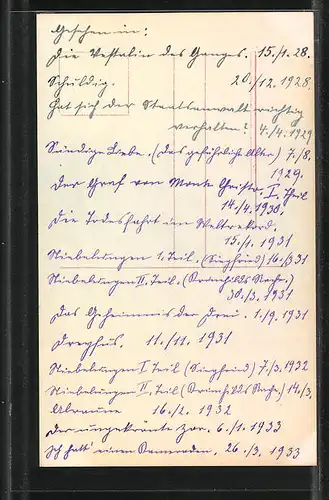 Gesehen in:
Die Vestalin des Ganges. 15./1. 28.
Schuldig. 20./12. 1928.
Hat sich der Staatsanwalt richtig
verhalten? 4./4. 1929
Sündige Liebe. (Das gefährliche Alter) 7./8.
1929.
Der Graf von Monte Christo. I. Theil
14./4. 1930.
Die Todesfahrt im Weltrekord.
15./1. 1931
Niebelungen 1. Teil. (Siegfried) 16./3 31
Niebelungen II. Teil. (Kriemhilds Rache.)
30./3. 1931
Das Geheimniss der Drei. 1./9. 1931
Dreyfus. 11./11. 1931
Niebelungen I Teil (Siegfried) 7./3. 1932
Niebelungen II. Teil (Kriemhilds Rache.) 14./3.
Alraune 16./2. 1932
Der ungekrönte Zar. 6./1. 1933
Ich hatt' einen Kameraden. 26./3. 1933